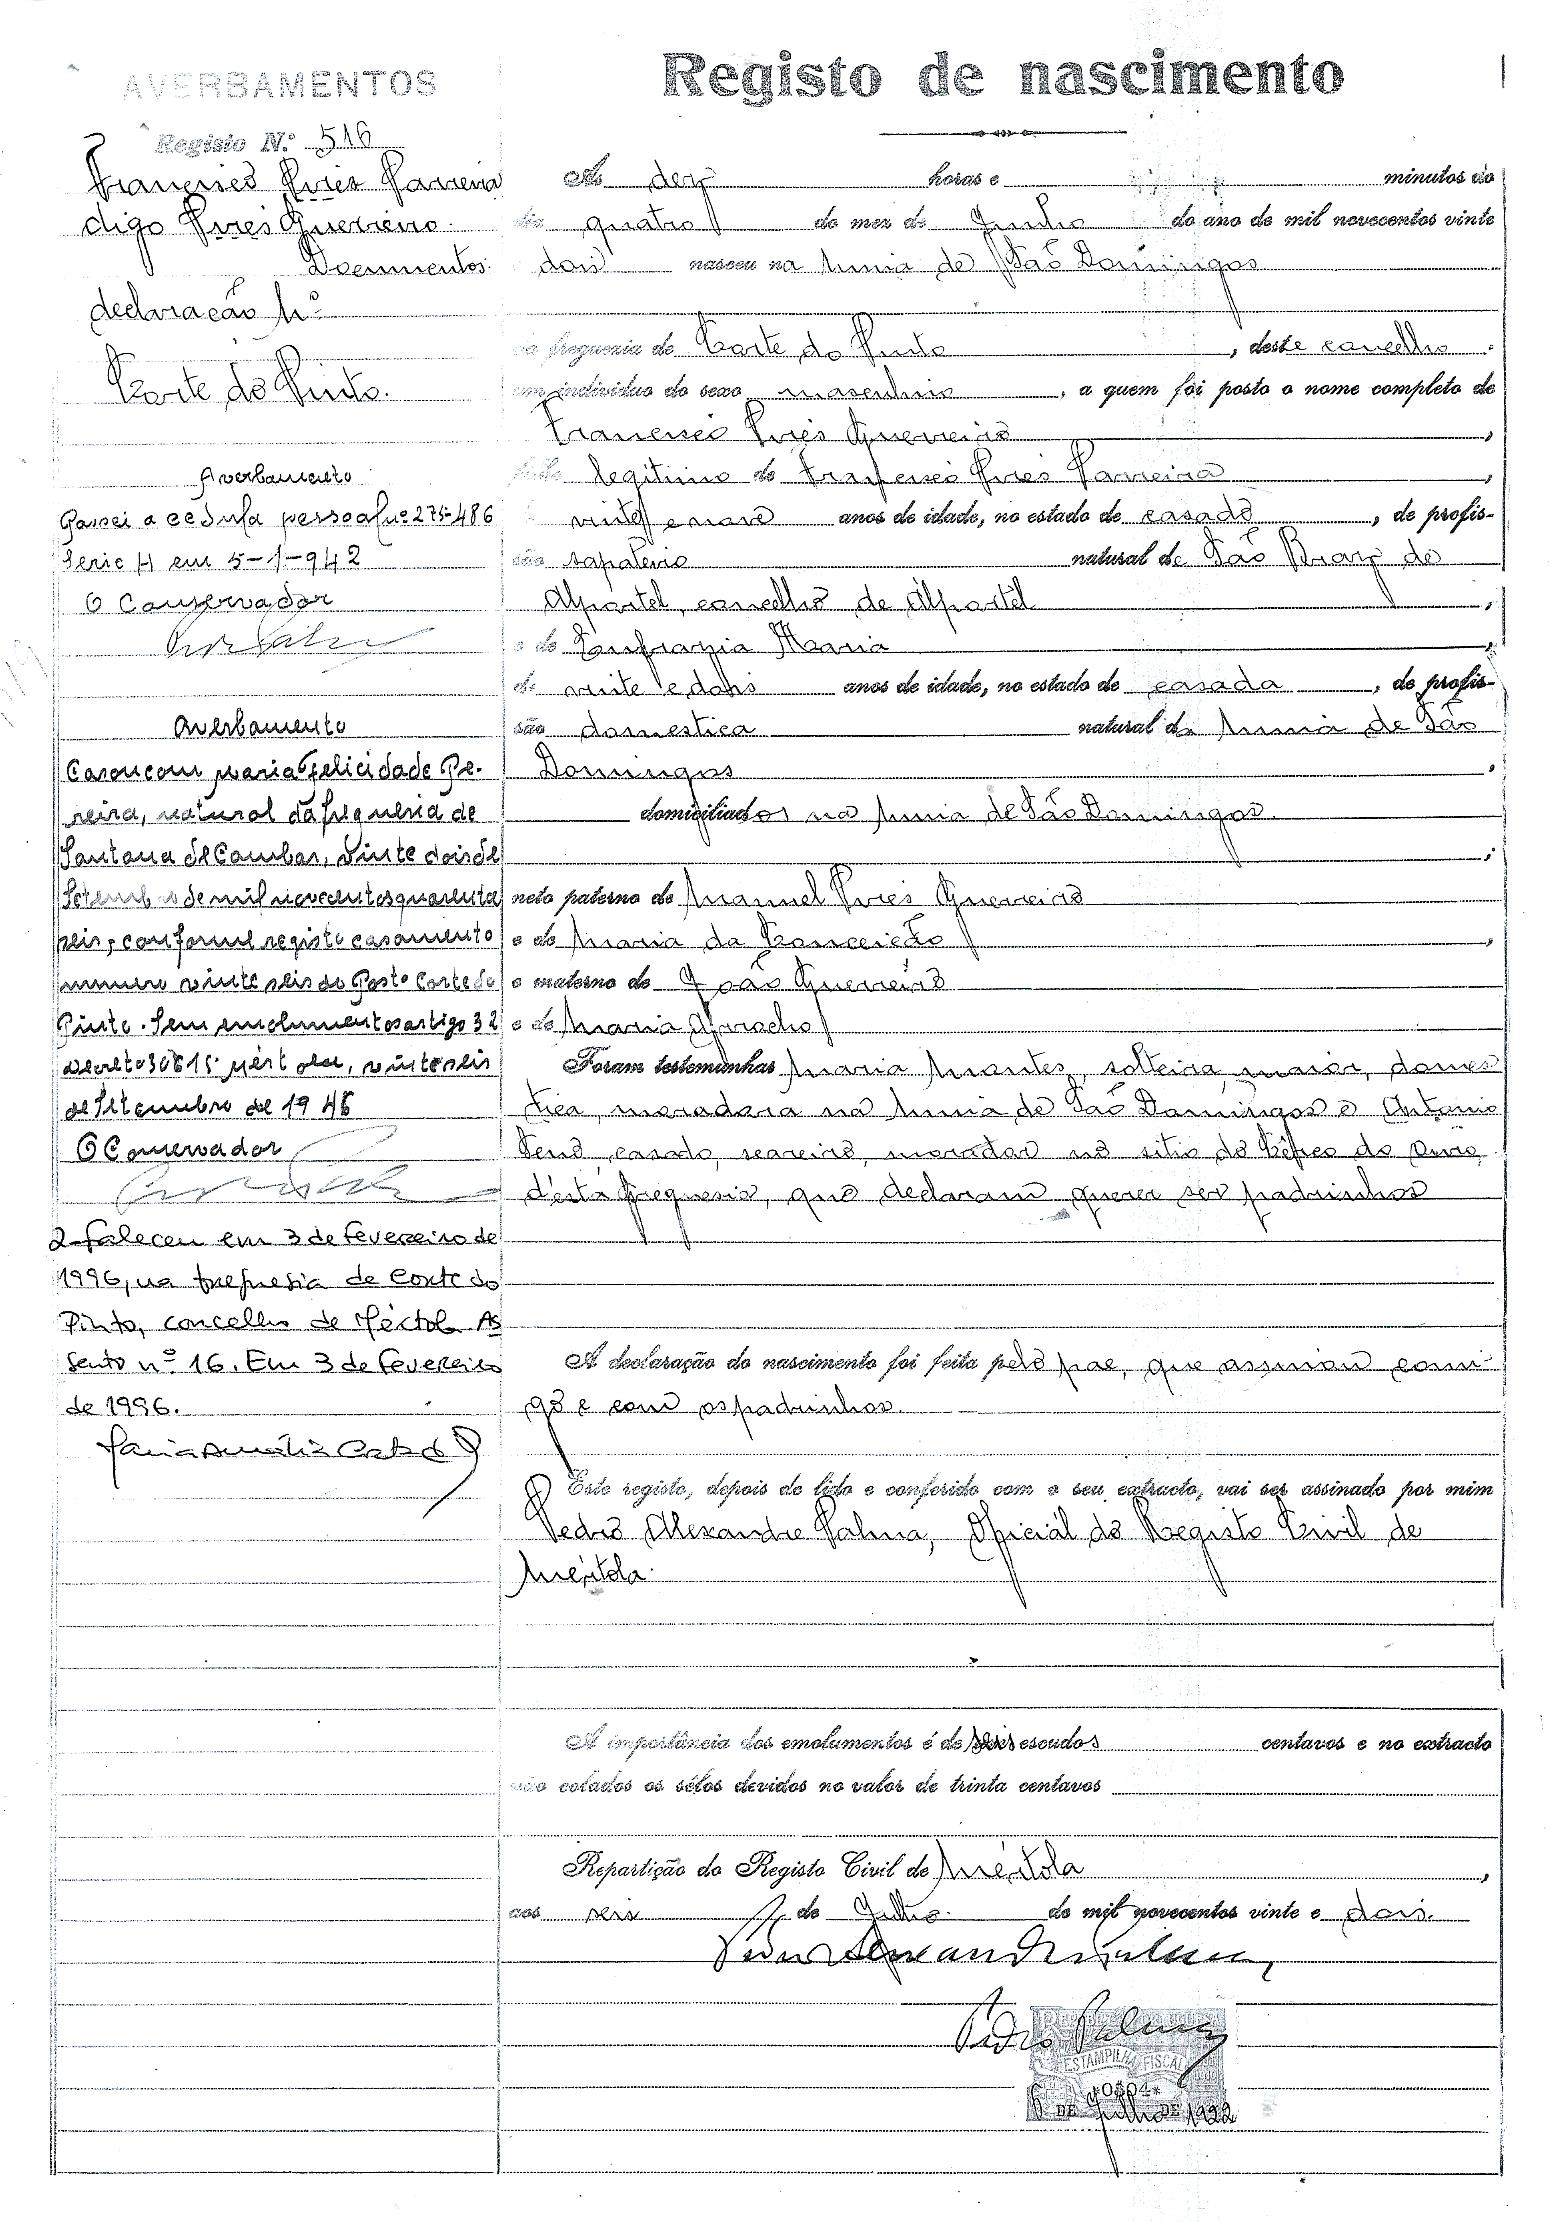 AVERBAMENTOS
Registo N.º 516
Francisco Pires Parreira
digo Pires Guerreiro.
Documentos:
declaração N.º
Corte do Pinto.
Averbamento
Passei a cedula pessoal nº 275486
Serie H em 5-1-942
O Conservador
Averbamento
Casou com Maria Felicidade Pe-
reira, natural da freguesia de
Santana de Cambas, vinte dois de
Setembro de mil novecentos quarenta
seis, conforme registo casamento
numero vinte seis do Posto Corte do
Pinto. Sem emolumentos artigo 32
Decreto 30615. Mértola, vinte seis
de Setembro de 1946
O Conservador
2-Faleceu em 3 de Fevereiro de
1996, na freguesia de Corte do
Pinto, concelho de Mértola. As
sento nº 16. Em 3 de Fevereiro
de 1996.
Registo de nascimento
Ás dez horas e minutos do
dia quatro do mez de Junho do ano de mil novecentos vinte
dois nasceu na Mina de São Domingos
na freguezia de Corte do Pinto, deste concelho.
um individuo do sexo masculino, a quem foi posto o nome completo de
Francisco Pires Guerreiro,
filho legitimo de Francisco Pires Parreira,
vinte e nove anos de idade, no estado de casado, de profis-
são sapateiro natural de São Braz de
Alportel, concelho de Alportel,
e de Eufrazia Maria,
de vinte e dois anos de idade, no estado de casada, de profis-
são domestica natural da Mina de São
Domingos,
domiciliados na Mina de São Domingos.
;
neto paterno de Manuel Pires Guerreiro
e de Maria da Conceição,
e materno de João Guerreiro
e de Maria
Foram testemunhas Maria Montes, solteira, maior, domes
tica, moradora na Mina de São Domingos e Antonio
casado, seareiro, morador no sitio do do
d'esta freguesia, que declaram querer ser padrinhos
A declaração do nascimento foi feita pelo pae, que assinou comi-
go e com os padrinhos.
Este registo, depois de lido e conferido com o seu extracto, vai ser assinado por mim
Pedro Alexandre Palma, Oficial do Registo Civil de
Mértola.
A importância dos emolumentos é de seis escudos centavos e no extracto
vão colados os sêlos devidos no valor de trinta centavos
Repartição do Registo Civil de Mértola,
aos seis de Julho de mil novecentos vinte e dois.
Pedro Alexandre Palma
Pedro Palma
ESTAMPILHA FISCAL
*0$04*
6 DE Julho DE 1922